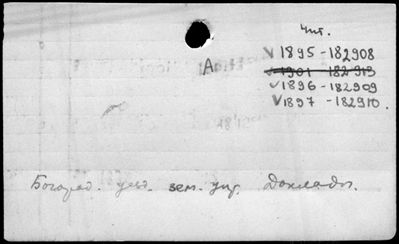 Чит.
A
✓ 1895-182908
1901 182913
✓ 1896-182909
✓ 1897-182910.
Богород. уезд. зем. упр. Доклады.